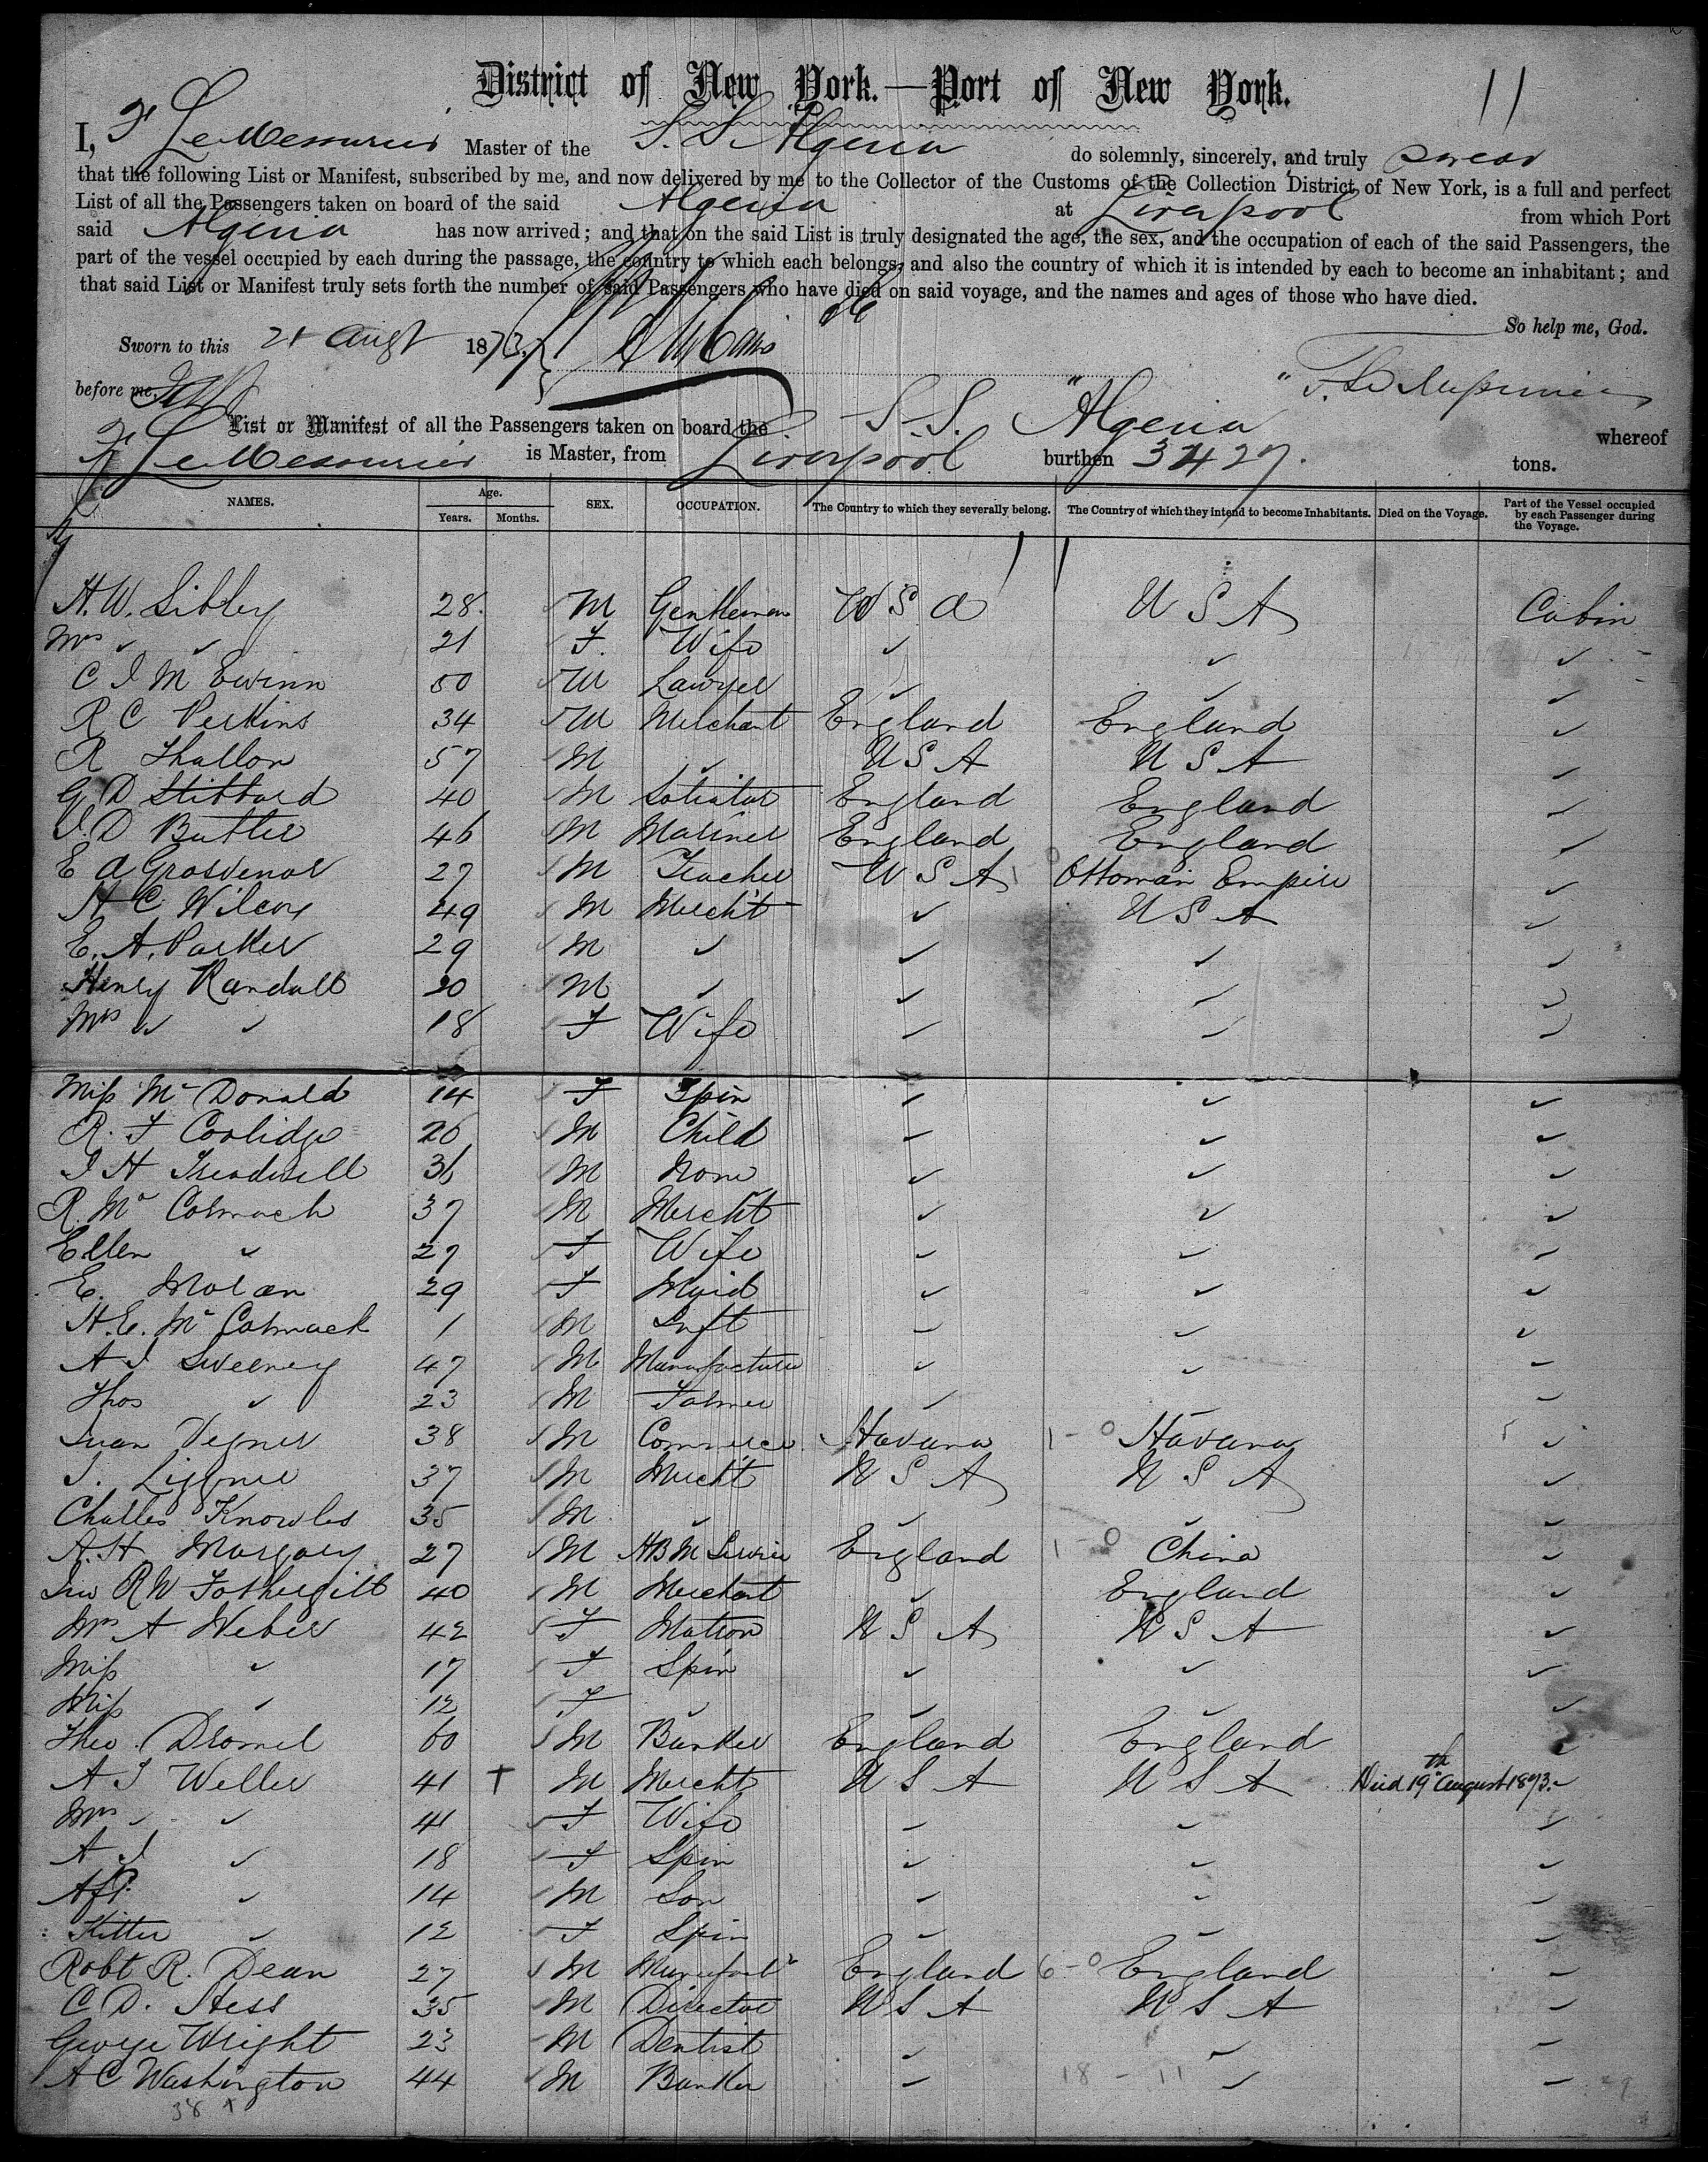 District of New York.—Port of New York.
11
I, F Le Messurier Master of the S. S. Algeria do solemnly, sincerely, and truly swear
that the following List or Manifest, subscribed by me, and now delivered by me to the Collector of the Customs of the Collection District of New York, is a full and perfect
List of all the Passengers taken on board of the said Algeria at Liverpool from which Port
said Algeria has now arrived; and that on the said List is truly designated the age, the sex, and the occupation of each of the said Passengers, the
part of the vessel occupied by each during the passage, the country to which each belongs, and also the country of which it is intended by each to become an inhabitant; and
that said List or Manifest truly sets forth the number of said Passengers who have died on said voyage, and the names and ages of those who have died.
So help me, God.
Sworn to this 21 Augt 1873,
before me,
List or Manifest of all the Passengers taken on board the S.S. "Algeria" whereof
F Le Messurier is Master, from Liverpool burthen 3427. tons.
NAMES. Age. Years. Months. SEX. OCCUPATION. The Country to which they severally belong. The Country of which they intend to become Inhabitants. Died on the Voyage. Part of the Vessel occupied by each Passenger during the Voyage.
H. W. Sibley 28. M Gentleman U S A U S A Cabin
Mrs ✓ ✓ 21 F. Wife ✓ ✓ ✓
C I M Ewinn 50 M Lawyer ✓ ✓ ✓
R C Perkins 34 M Merchant England England ✓
R Thallon 57 M ✓ U S A U S A ✓
G D Stibbard 40 M Solicitor England England ✓
I. D Butler 46 M Mariner England England ✓
E A Grosvenor 27 M Teacher U S A Ottoman Empire ✓
H C Wilcox 49 M Mercht ✓ U S A ✓
E. A. Parker 29 M ✓ ✓ ✓ ✓
Henry Randall 20 M ✓ ✓ ✓ ✓
Mrs ✓ ✓ 18 F Wife ✓ ✓ ✓
Miss Mc Donald 14 F Spin ✓ ✓ ✓
R. F Coolidge 26 M Child ✓ ✓ ✓
I H Treadwell 36 M None ✓ ✓ ✓
R. Mc Cormack 37 M Mercht ✓ ✓ ✓
Ellen ✓ 27 F Wife ✓ ✓ ✓
E. Moran 29 F Maid ✓ ✓ ✓
H. E. Mc Cormack 1 M Inft ✓ ✓ ✓
A I Sweeney 47 M Manufacturer ✓ ✓ ✓
Thos ✓ 23 M Farmer ✓ ✓ ✓
Juan 38 M Commerce Havana 1 - 0 Havana ✓
37 M Mercht U S A U S A ✓
Charles Knowles 35 M ✓ ✓ ✓ ✓
A. H Margary 27 M H B M Service England 1 - 0 China ✓
R W Fothergill 40 M Merchant ✓ England ✓
Mrs A Weber 42 F Matron U S A U S A ✓
Miss ✓ 17 F Spin ✓ ✓ ✓
Miss ✓ 12 F ✓ ✓ ✓ ✓
Theo. Dromel 60 M Banker England England ✓
A I Weller 41 † M Mercht U S A U S A Died 19th August 1873. ✓
Mrs ✓ ✓ 41 F Wife ✓ ✓ ✓
A I ✓ 18 F Spin ✓ ✓ ✓
✓ 14 M Son ✓ ✓ ✓
✓ 12 F Spin ✓ ✓ ✓
Robt R. Dean 27 M England 6 - 0 England ✓
C D. Hess 35 M Director U S A U S A ✓
George Wright 23 M Dentist ✓ ✓ ✓
A C Washington 44 M Banker ✓ 18 - 11 ✓ ✓
38 x